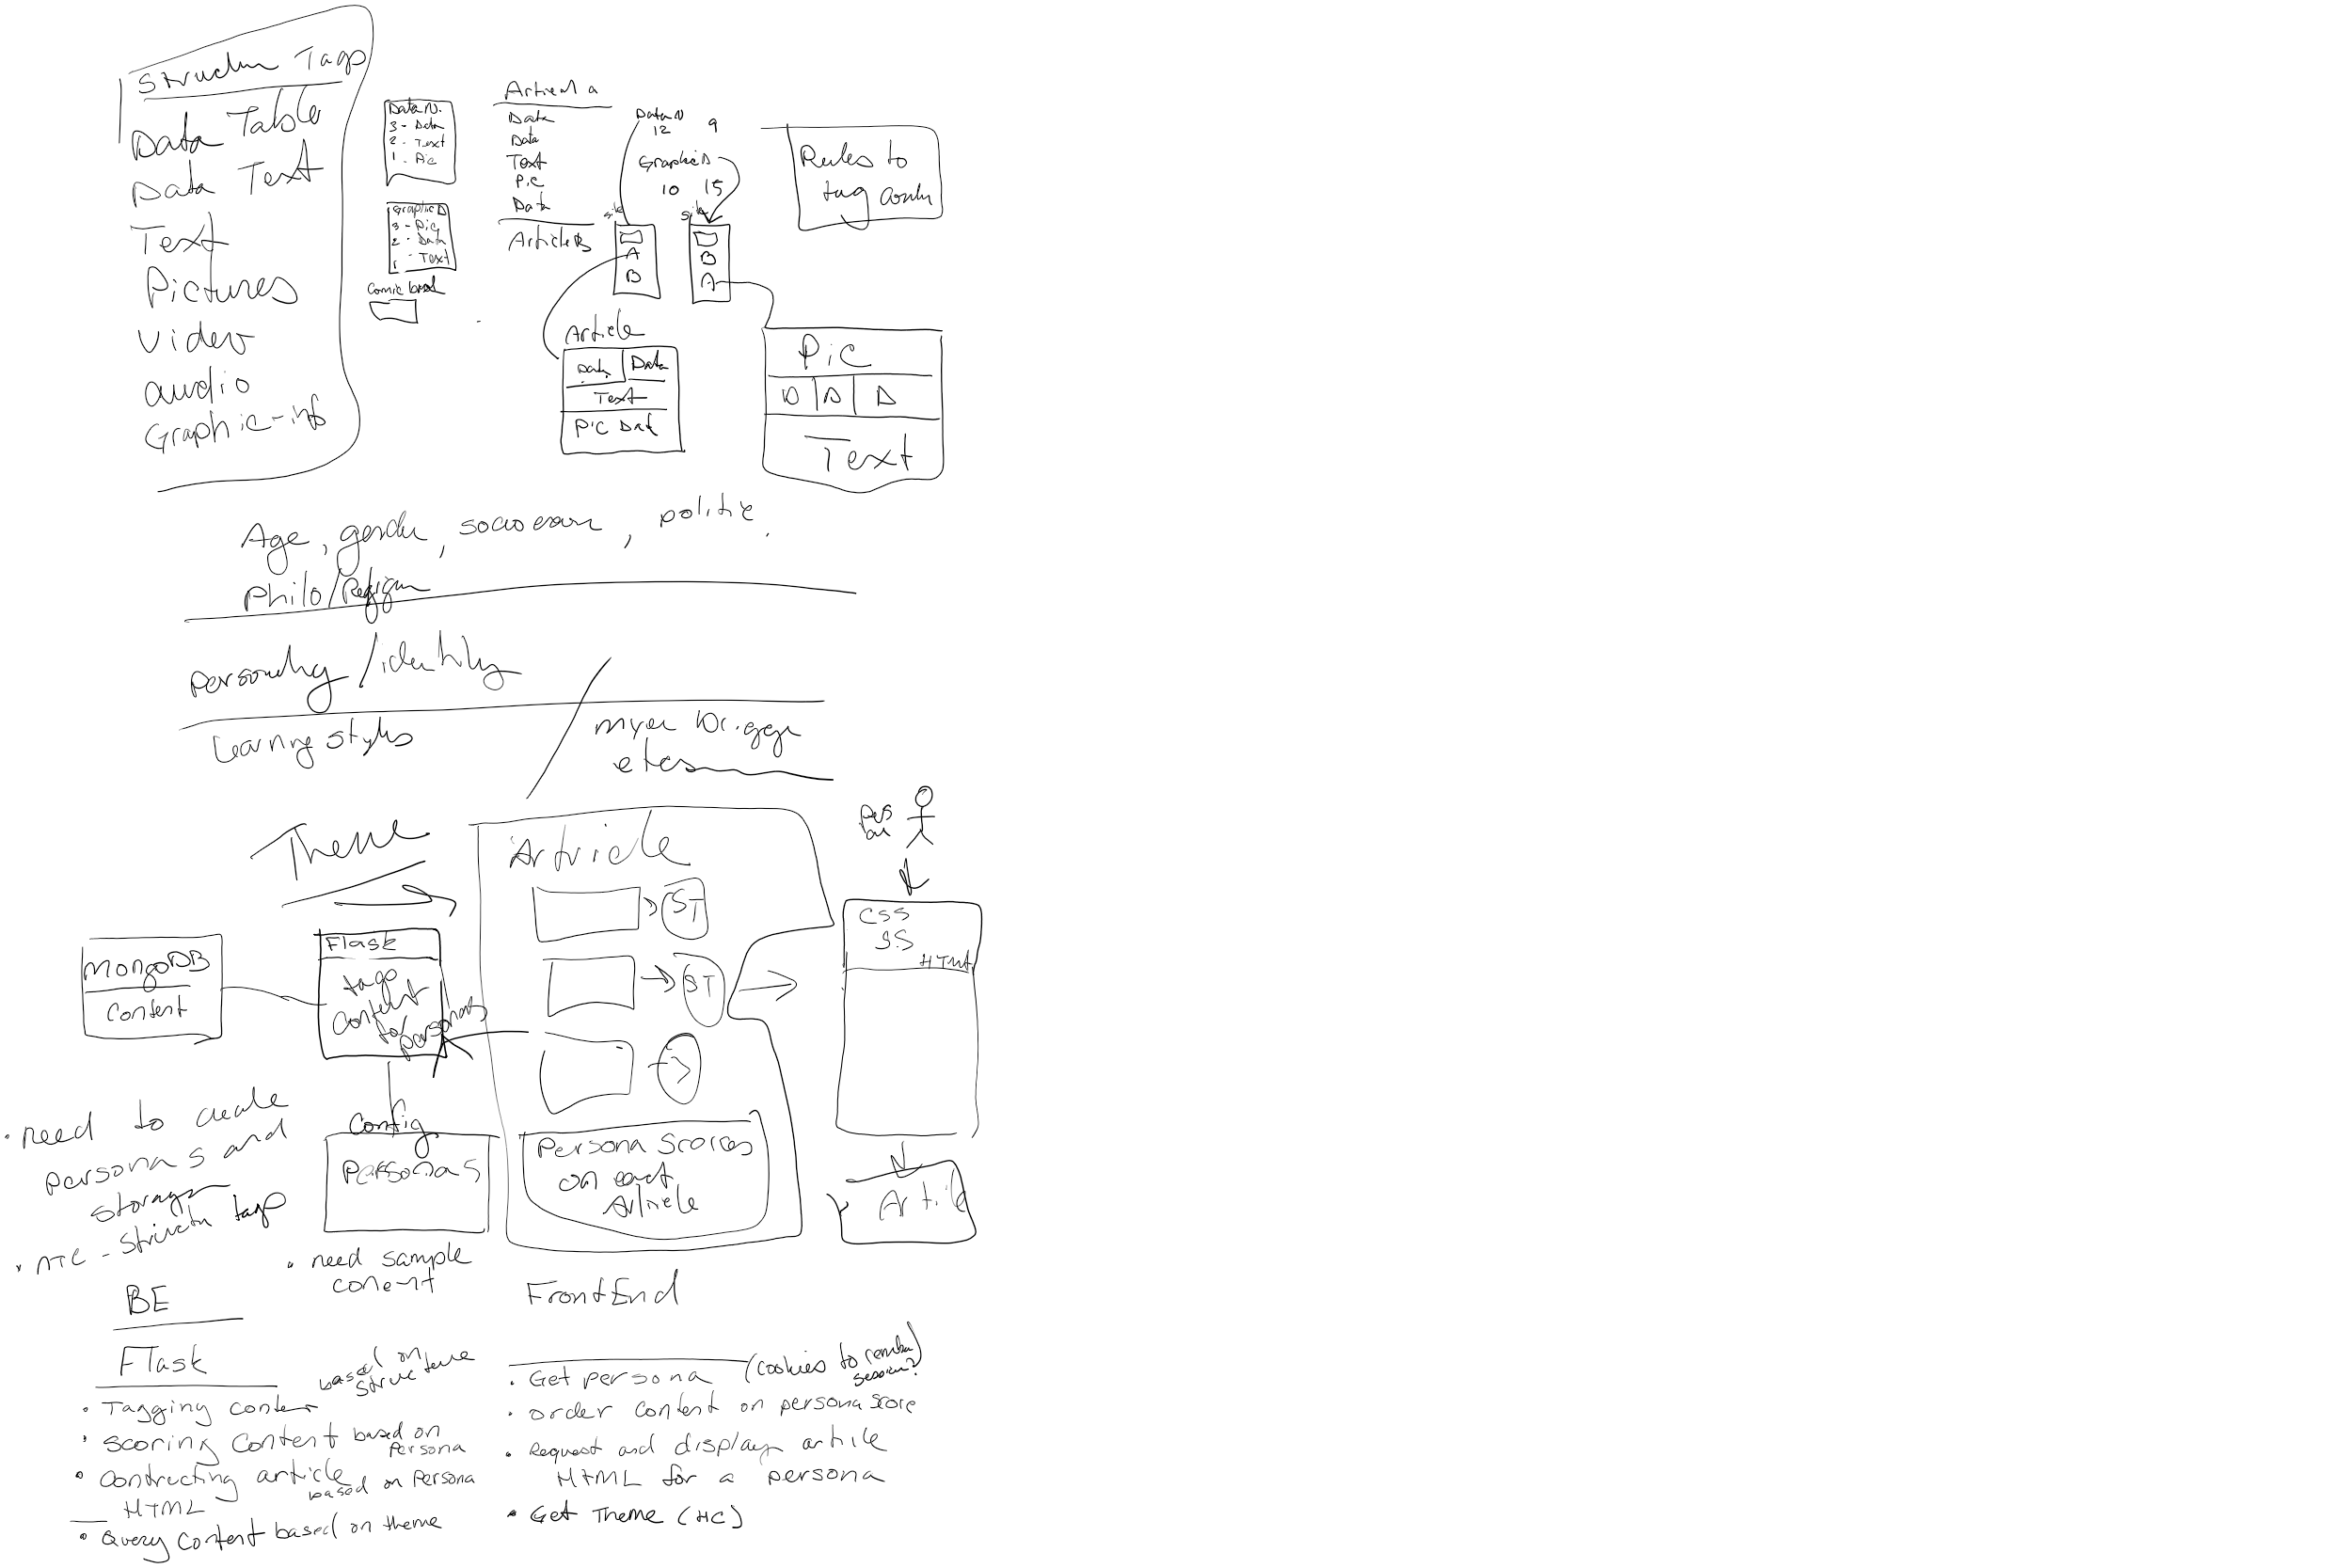 Structur Tags
Data Table
Data Text
Text
Pictures
Video
audio
Graphic-inf
Data N.
3 - Data
2 - Text
1 - Pic
Graphic D
3 - Pic
2 - Data
1 - Text
Comic book
Articel a
Data
Data
Text
Pic
Data
Article B
Data N
12 9
Graphic D
10 15
A
B
B
A
Rules to
tag
Article
Data Data
Text
Pic Dat
Pic
D D D
Text
Age, gender, socioecon, politic.
Philo/Religion
personality/identity
Learning styles
etc
Theme
Article
ST
ST
Persona Scores
on each
Article
MongoDB
Content
Flask
tags
content
for
personas
Config
Personas
CSS
JS
HTML
Article
• need to create
personas and
storage
- Structu tags
• need sample
content
BE
FrontEnd
Flask
• Tagging content based on structure
• Scoring Content based on Persona
• Contructing article based on Persona
HTML
• Query Content based on theme
• Get persona (cookies to remember session?)
• order content on persona score
• Request and display article
HTML for a persona
• Get Theme (HC)